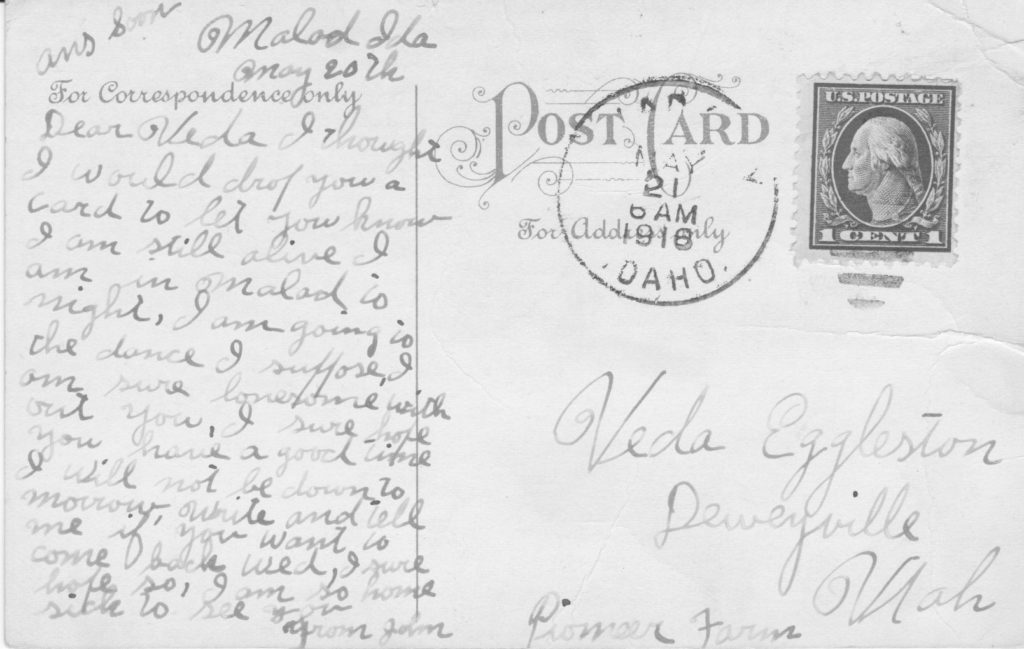 ans Soon
Malad Ida
May 20th
For Correspondence only
Dear Veda I thought
I would drop you a
card to let you know
I am still alive I
am in Malad to
night, I am going to
the dance I suppose, I
am sure lonesome with
out you, I sure hope
you have a good time
I will not be down to
morrow, write and tell
me if you want to
come back wed, I sure
hope so, I am so home
sick to see you
from John
POST CARD
For Address only
MAY
21
6 AM
1918
IDAHO.
U.S. POSTAGE
1 CENT 1
Veda Eggleston
Deweyville
Utah
Pioneer Farm